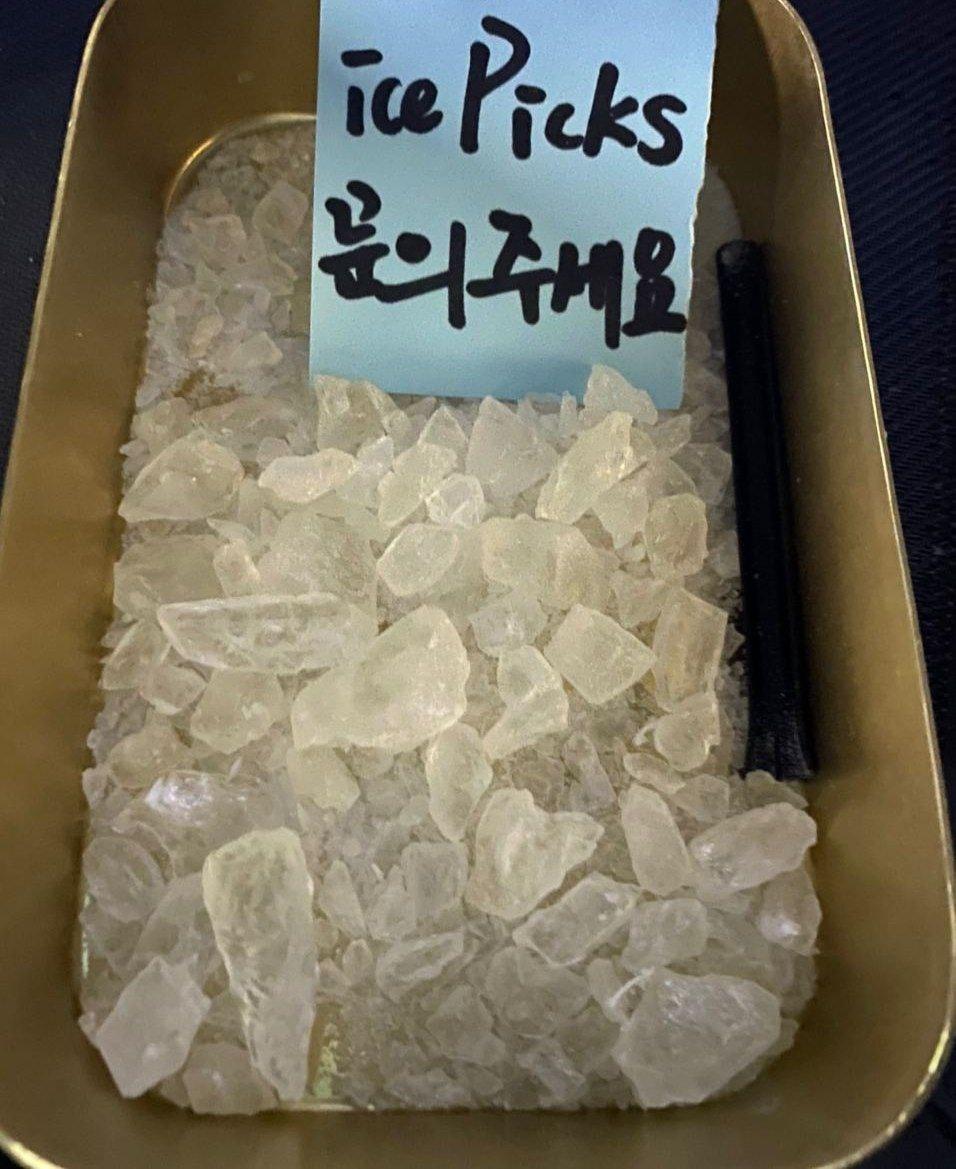 ice Picks
문의주세요